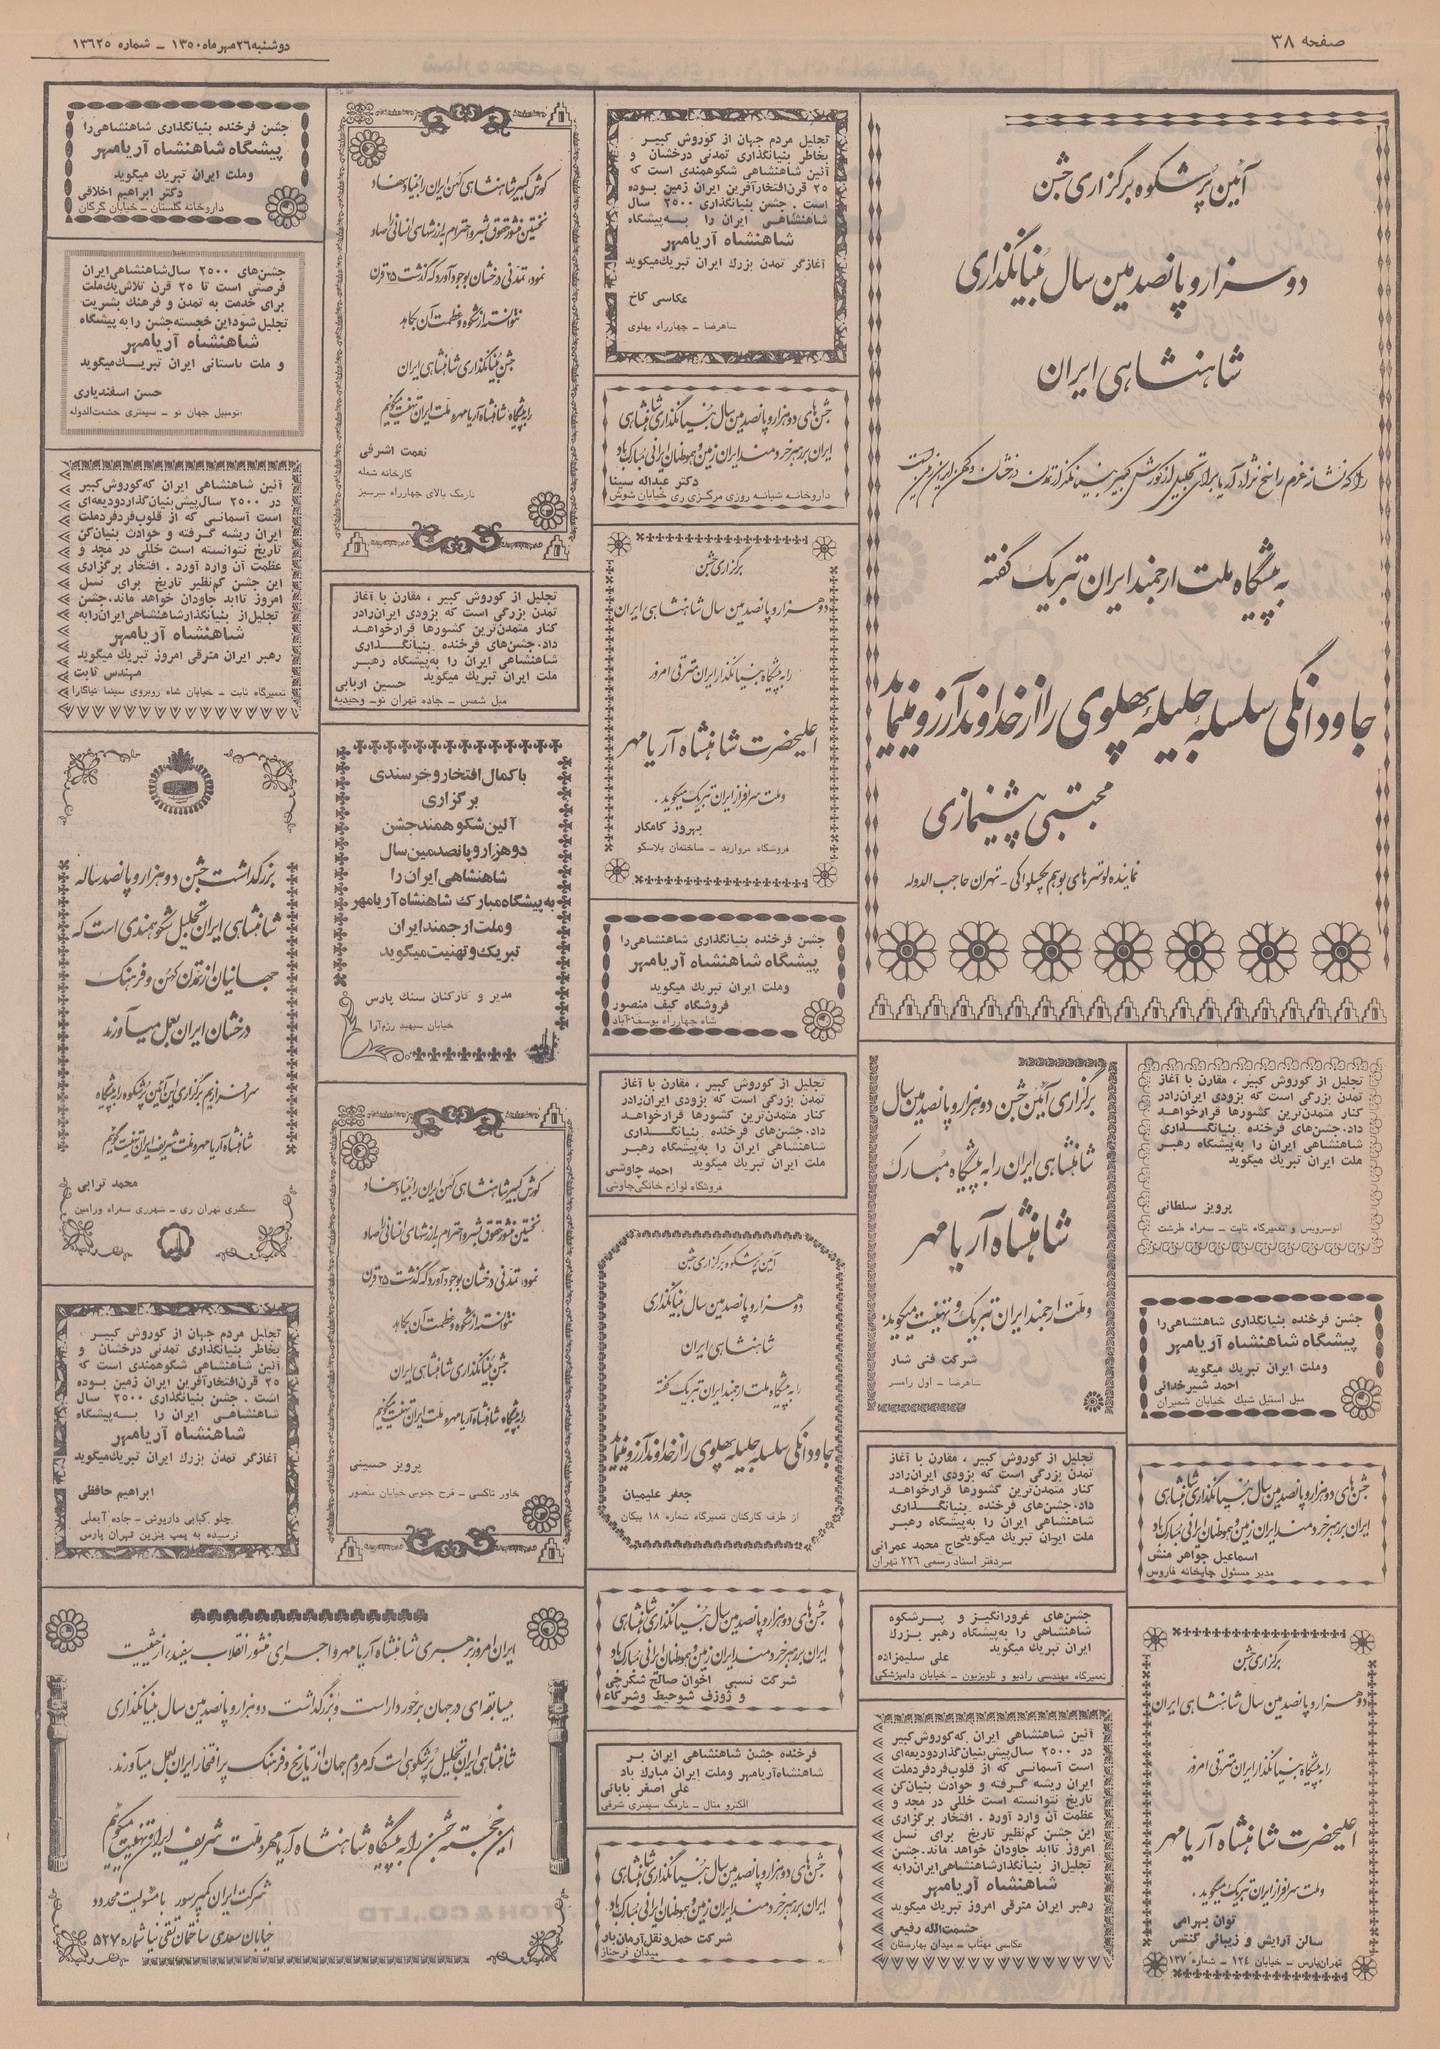 صفحه ۳۸
دوشنبه ۲۶ مهر ماه ۱۳۵۰ ـ شماره ۱۳۶۲۵
آئین پرشکوه برگزاری جشن
دوهزار و پانصدمین سال بنیانگذاری
شاهنشاهی ایران
به پیشگاه ملت ارجمند ایران تبریک گفته
جاودانگی سلسله جلیله پهلوی را از خداوند آرزو مینماید
مجتبی پیشنمازی
تهران حاجب الدوله
تجلیل مردم جهان از کوروش کبیر
بخاطر بنیانگذاری تمدنی درخشان و
آئین شاهنشاهی شکوهمندی است که
۲۵ قرن افتخارآفرین ایران زمین بوده
است . جشن بنیانگذاری ۲۵۰۰ سال
شاهنشاهی ایران را به پیشگاه
شاهنشاه آریامهر
آغازگر تمدن بزرگ ایران تبریک میگوید
عکاسی کاخ
شاهرضا ـ چهارراه پهلوی
جشن‌های دوهزار و پانصدمین سال بنیانگذاری شاهنشاهی
ایران بر رهبر خردمند ایران زمین و هموطنان ایرانی مبارک باد
دکتر عبداله سینا
داروخانه شبانه روزی مرکزی ری خیابان شوش
برگزاری جشن
دوهزار و پانصدمین سال شاهنشاهی ایران
را به پیشگاه بنیانگذار ایران مترقی امروز
اعلیحضرت شاهنشاه آریامهر
و ملت سرافراز ایران تبریک میگوید .
بهروز کامکار
فروشگاه مروارید ـ ساختمان پلاسکو
جشن فرخنده بنیانگذاری شاهنشاهی را
پیشگاه شاهنشاه آریامهر
وملت ایران تبریک میگوید
فروشگاه کیف منصور
شاه چهارراه یوسف‌آباد
تجلیل از کوروش کبیر ، مقارن با آغاز
تمدن بزرگی است که بزودی ایران‌رادر
کنار متمدن‌ترین کشورها قرارخواهد
داد.جشن‌های فرخنده بنیانگذاری
شاهنشاهی ایران را به‌پیشگاه رهبر
ملت ایران تبریک میگوید
احمد چاوشی
فروشگاه لوازم خانگی چاوشی
آئین پرشکوه برگزاری جشن
دوهزار و پانصدمین سال بنیانگذاری
شاهنشاهی ایران
را به پیشگاه ملت ارجمند ایران تبریک گفته
جاودانگی سلسله جلیله پهلوی را از خداوند آرزو مینماید
جعفر علیمیان
از طرف کارکنان تعمیرگاه شماره ۱۸ پیکان
جشن‌های دوهزار و پانصدمین سال بنیانگذاری شاهنشاهی
ایران بر رهبر خردمند ایران زمین و هموطنان ایرانی مبارک باد
شرکت نسبی اخوان صالح شکرچی
و ژوزف شوحیط وشرکاء
فرخنده جشن شاهنشاهی ایران بر
شاهنشاه آریامهر وملت ایران مبارک باد
علی اصغر بابائی
الکترو متال ـ نارمک سیمتری شرقی
جشن‌های دوهزار و پانصدمین سال بنیانگذاری شاهنشاهی
ایران بر رهبر خردمند ایران زمین و هموطنان ایرانی مبارک باد
شرکت حمل‌ونقل آرمان‌بار
میدان فرحناز
کورش کبیر شاهنشاهی کهن ایران را بنیاد نهاد
نخستین منشور حقوق بشر و احترام به ارزشهای انسانی را صادر
نمود، تمدنی درخشان بوجود آورد که گذشت ۲۵ قرن
نتوانسته از شکوه و عظمت آن بکاهد
جشن بنیانگذاری شاهنشاهی ایران
را به پیشگاه شاهنشاه آریامهر و ملت ایران تهنیت میگویم
نعمت اشرفی
کارخانه شعله
نارمک بالای چهارراه سرسبز
تجلیل از کوروش کبیر ، مقارن با آغاز
تمدن بزرگی است که بزودی ایران‌رادر
کنار متمدن‌ترین کشورها قرارخواهد
داد.جشن‌های فرخنده بنیانگذاری
شاهنشاهی ایران را به‌پیشگاه رهبر
ملت ایران تبریک میگوید
حسین اربابی
مبل شمس ـ جاده تهران نو- وحیدیه
باکمال افتخار و خرسندی
برگزاری
آئین شکوهمند جشن
دوهزار و پانصدمین سال
شاهنشاهی ایران را
به پیشگاه مبارک شاهنشاه آریامهر
و ملت ارجمند ایران
تبریک و تهنیت میگوید
مدیر و کارکنان سنگ پارس
خیابان سپهبد رزم‌آرا
کورش کبیر شاهنشاهی کهن ایران را بنیاد نهاد
نخستین منشور حقوق بشر و احترام به ارزشهای انسانی را صادر
نمود، تمدنی درخشان بوجود آورد که گذشت ۲۵ قرن
نتوانسته از شکوه و عظمت آن بکاهد
جشن بنیانگذاری شاهنشاهی ایران
را به پیشگاه شاهنشاه آریامهر و ملت ایران تهنیت میگویم
پرویز حسینی
خاور تاکسی ـ فرح جنوبی خیابان منصور
جشن فرخنده بنیانگذاری شاهنشاهی را
پیشگاه شاهنشاه آریامهر
وملت ایران تبریک میگوید
دکتر ابراهیم اخلاقی
داروخانه گلستان ـ خیابان گرگان
جشن‌های ۲۵۰۰ سال شاهنشاهی ایران
فرصتی است تا ۲۵ قرن تلاش یک ملت
برای خدمت به تمدن و فرهنگ بشریت
تجلیل شود این خجسته جشن را به پیشگاه
شاهنشاه آریامهر
و ملت باستانی ایران تبریک میگوید
حسن اسفندیاری
اتومبیل جهان نو ـ سیمتری حشمت‌الدوله
آئین شاهنشاهی ایران که کوروش کبیر
در ۲۵۰۰ سال پیش بنیان گذارد ودیعه‌ای
است آسمانی که از قلوب فردفرد ملت
ایران ریشه گرفته و حوادث بنیان‌کن
تاریخ نتوانسته است خللی در مجد و
عظمت آن وارد آورد . افتخار برگزاری
این جشن کم‌نظیر تاریخ برای نسل
امروز تاابد جاودان خواهد ماند.جشن
تجلیل از بنیانگذار شاهنشاهی ایران رابه
شاهنشاه آریامهر
رهبر ایران مترقی امروز تبریک میگوید
مهندس ثابت
تعمیرگاه ثابت ـ خیابان شاه روبروی سینما نیاگارا
بزرگداشت جشن دوهزار و پانصد ساله
شاهنشاهی ایران تجلیل شکوهمندی است که
جهانیان از تمدن کهن و فرهنگ
درخشان ایران بعمل میآورند
سرافرازیم برگزاری این آئین پرشکوه را به پیشگاه
شاهنشاه آریامهر و ملت شریف ایران تهنیت گوئیم
محمد ترابی
سنگبری تهران ری ـ شهرری سه‌راه ورامین
تجلیل مردم جهان از کوروش کبیر
بخاطر بنیانگذاری تمدنی درخشان و
آئین شاهنشاهی شکوهمندی است که
۲۵ قرن افتخارآفرین ایران زمین بوده
است . جشن بنیانگذاری ۲۵۰۰ سال
شاهنشاهی ایران را به پیشگاه
شاهنشاه آریامهر
آغازگر تمدن بزرگ ایران تبریک میگوید
ابراهیم حافظی
چلو کبابی داریوش ـ جاده آبعلی
نرسیده به پمپ بنزین تهران پارس
شاهنشاهی ایران تجلیل پرشکوهی است که مردم جهان از تاریخ و فرهنگ پر افتخار ایران بعمل میآورند .
این خجسته جشن را به پیشگاه شاهنشاه آریامهر و ملت شریف ایران تهنیت میگوئیم
شرکت ایران کمپرسور با مسئولیت محدود
خیابان سعدی ساختمان تقی نیا شماره ۵۲۷
برگزاری آئین جشن دوهزار و پانصدمین سال
شاهنشاهی ایران را به پیشگاه مبارک
شاهنشاه آریامهر
و ملت ارجمند ایران تبریک و تهنیت میگوید.
شرکت فنی شار
شاهرضا ـ اول رامسر
تجلیل از کوروش کبیر ، مقارن با آغاز
تمدن بزرگی است که بزودی ایران‌رادر
کنار متمدن‌ترین کشورها قرارخواهد
داد.جشن‌های فرخنده بنیانگذاری
شاهنشاهی ایران را به‌پیشگاه رهبر
ملت ایران تبریک میگوید
حاج محمد عمرانی
سردفتر اسناد رسمی ۲۲۶ تهران
جشن‌های غرورانگیز و پرشکوه
شاهنشاهی را به‌پیشگاه رهبر بزرگ
ایران تبریک میگوید
علی سلیمزاده
تعمیرگاه مهندسی رادیو و تلویزیون ـ خیابان دامپزشکی
آئین شاهنشاهی ایران که کوروش کبیر
در ۲۵۰۰ سال پیش بنیان گذارد ودیعه‌ای
است آسمانی که از قلوب فردفرد ملت
ایران ریشه گرفته و حوادث بنیان‌کن
تاریخ نتوانسته است خللی در مجد و
عظمت آن وارد آورد . افتخار برگزاری
این جشن کم‌نظیر تاریخ برای نسل
امروز تاابد جاودان خواهد ماند.جشن
تجلیل از بنیانگذار شاهنشاهی ایران رابه
شاهنشاه آریامهر
رهبر ایران مترقی امروز تبریک میگوید
حشمت‌الله رفیعی
عکاسی مهتاب ـ میدان بهارستان
تجلیل از کوروش کبیر ، مقارن با آغاز
تمدن بزرگی است که بزودی ایران‌رادر
کنار متمدن‌ترین کشورها قرارخواهد
داد.جشن‌های فرخنده بنیانگذاری
شاهنشاهی ایران را به‌پیشگاه رهبر
ملت ایران تبریک میگوید
پرویز سلطانی
اتوسرویس و تعمیرگاه ثابت ـ سه‌راه طرشت
جشن فرخنده بنیانگذاری شاهنشاهی را
پیشگاه شاهنشاه آریامهر
وملت ایران تبریک میگوید
احمد شیرخدائی
مبل استیل شیک خیابان شمیران
جشن‌های دوهزار و پانصدمین سال بنیانگذاری شاهنشاهی
ایران بر رهبر خردمند ایران زمین و هموطنان ایرانی مبارک باد
اسماعیل جواهر منش
مدیر مسئول چاپخانه فاروس
برگزاری جشن
دوهزار و پانصدمین سال شاهنشاهی ایران
را به پیشگاه بنیانگذار ایران مترقی امروز
اعلیحضرت شاهنشاه آریامهر
و ملت سرافراز ایران تبریک میگوید .
توان بهرامی
سالن آرایش و زیبائی گنتس
تهران‌پارس ـ خیابان ۱۲۴ ـ شماره ۱۳۷